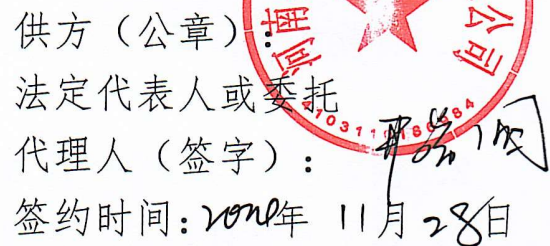 供方（公章）：
法定代表人或委托
代理人（签字）：
签约时间：年 11月28日
河南
公司